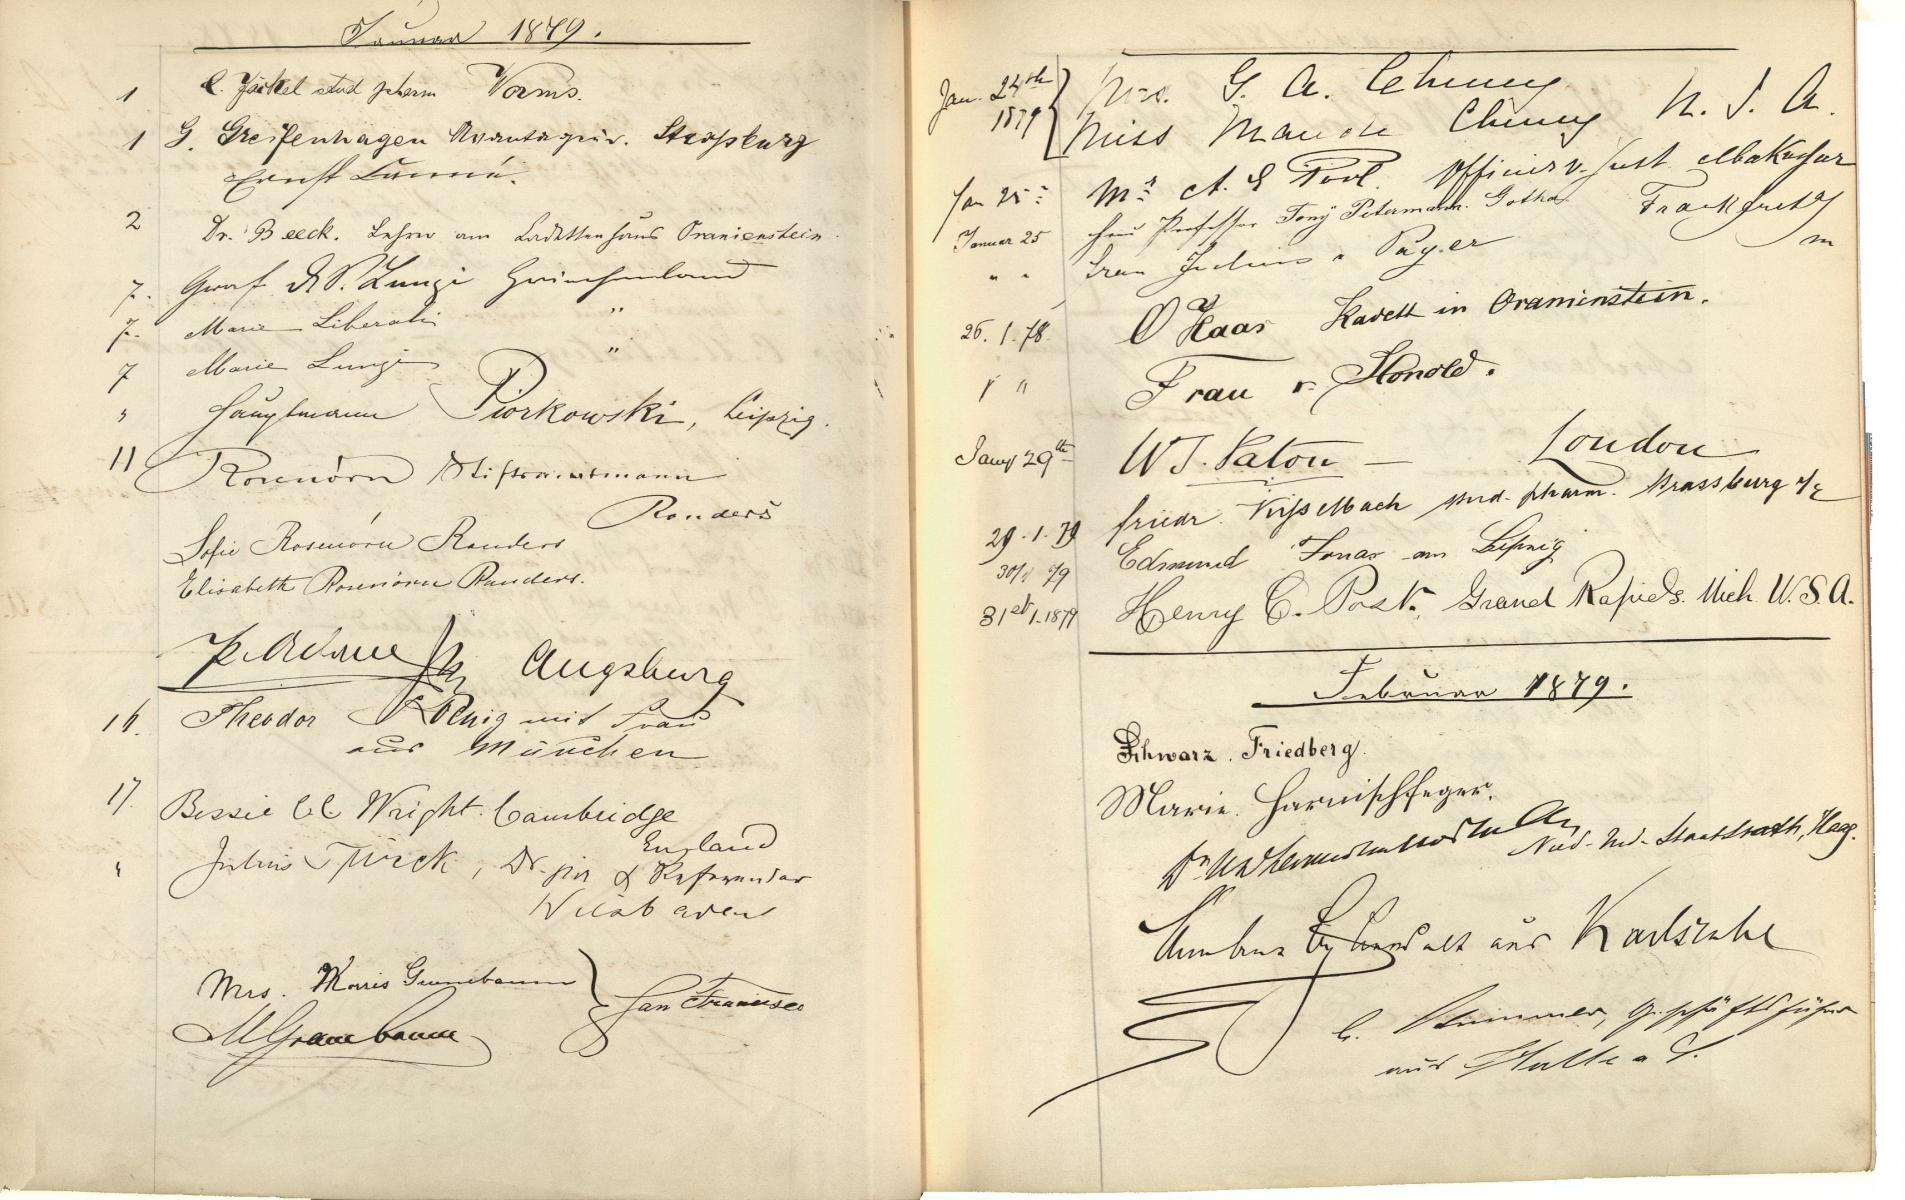 Januar 1879.
1 stud pharm Worms.
1 G. Greifenhagen Avantageur. Straßburg
Ernst
2 Dr. Beeck. Lehrer am Kadettenhaus Oranienstein
7. Graf Lunzi Griechenland
7. Marie Liberali "
7 Marie Lunzi "
" Hauptmann Piorkowski, Leipzig.
11 Rosenörn Stiftsamtmann
Randers
Sofie Rosenörn Randers
Elisabeth Rosenörn Randers.
Augsburg
16. Theodor Koenig mit Frau
aus München
17. Bessie Wright. Cambridge
England
" Julius Türck, Dr. jur & Referendar
Wiesbaden
Mrs. Morris Greenebaum
San Francisco
M Greenebaum
Jan. 24th
1879
Mrs. G. A. Cheney
Miss Maude Cheney U. S. A.
Jan 25 Mr A. E Officier v. Just. Makassar
Januar 25 Frau Professor Tony Petermann. Gotha Frankfurt a/
m
" " Frau Julius v Payer
26. 1. 78. O Haas Kadett in Oranienstein.
" " Frau v. Honold.
Jany 29th W J. Paton — London
29. 1. 79 friedr. stud. pharm. Strassburg i/E
30/1 79 Edmund Jonas aus Leipzig
31st 1. 1879 Henry C. Post, Grand Rapids. Mich U.S.A.
Februar 1879.
Schwarz. Friedberg.
Marie. Harnischfeger.
Dr Ned. Ind. Staatsrath, Haag.
aus Karlsruhe
C. Geschäftsführer
aus Halle a S.